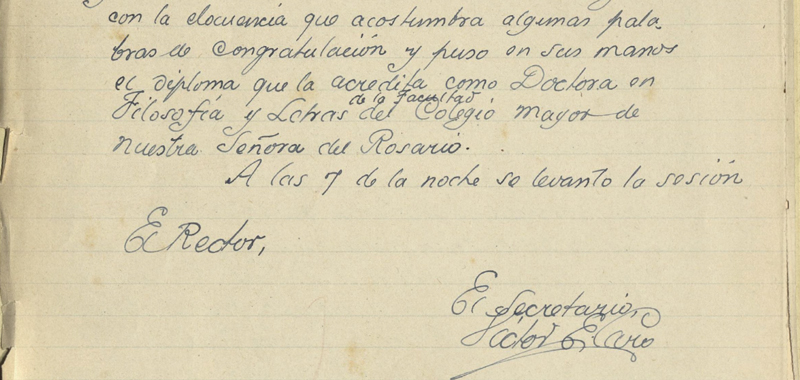 con la elocuencia que acostumbra algunas pala
bras de congratulación y puso en sus manos
el diploma que la acredita como Doctora en
de la Facultad
Filosofía y Letras del Colegio Mayor de
nuestra Señora del Rosario.
A las 7 de la noche se levanto la sesión
El Rector,
El Secretario,